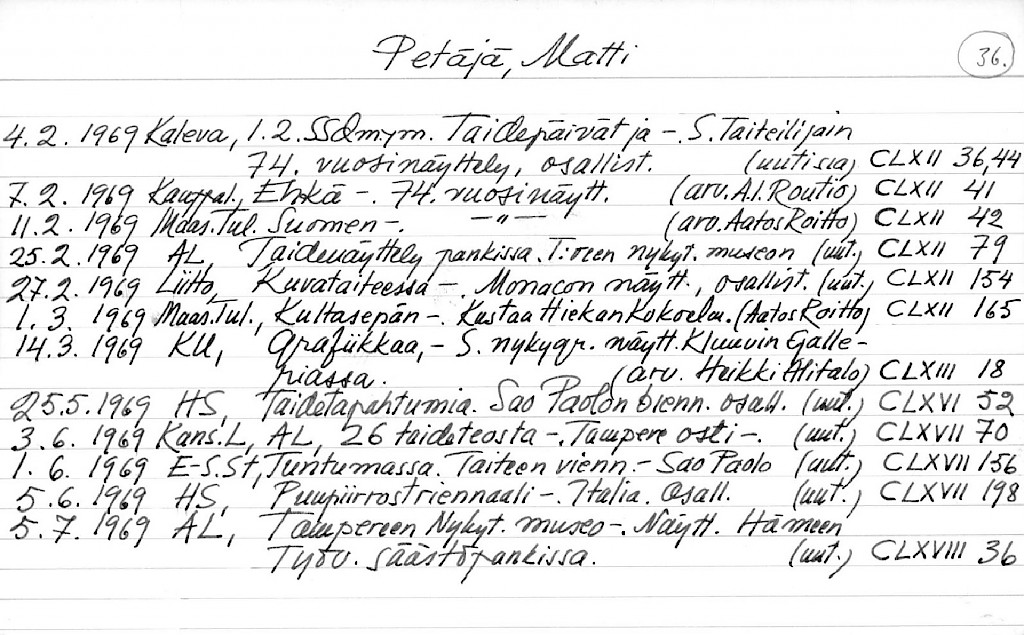 Petäjä, Matti
36.
4.2. 1969 Kaleva, 1.2. SSdm:ym. Taidepäivät ja -. S. Taiteilijain
74. vuosinäyttely, osallist. (uutisia) CLXII 36,44
7.2. 1969 Kauppal., Ehkä -. 74. vuosinäytt. (arv. A.I. Routio) CLXII 41
11.2. 1969 Maas.Tul. Suomen -. -"- (arv. Aatos Roitto) CLXII 42
25.2. 1969 AL, Taidenäyttely pankissa. T:reen nykyt. museon (uut.) CLXII 79
27.2. 1969 Liitto, Kuvataiteessa -. Monacon näytt., osallist. (uut.) CLXII 154
1. 3. 1969 Maas.Tul., Kultasepän -. Kustaa Hiekan Kokoelm. (Aatos Roitto) CLXII 165
14.3. 1969 KU, Grafiikkaa, - S. nykygr. näytt. Kluuvin Galle-
riassa. (arv. Heikki Alitalo) CLXIII 18
25.5.1969 HS, Taidetapahtumia. Sao Paolon bienn. osall. (uut.) CLXVI 52
3.6. 1969 Kans.L, AL, 26 taideteosta -. Tampere osti -. (uut.) CLXVII 70
1. 6. 1969 E-S.St, Tuntumassa. Taiteen vienn. - Sao Paolo (uut.) CLXVII 156
5.6. 1969 HS, Puupiirrostriennaali -. Italia. Osall. (uut.) CLXVII 198
5.7. 1969 AL, Tampereen Nykyt. museo -. Näytt. Hämeen
Työv. Säästöpankissa. (uut.) CLXVIII 36